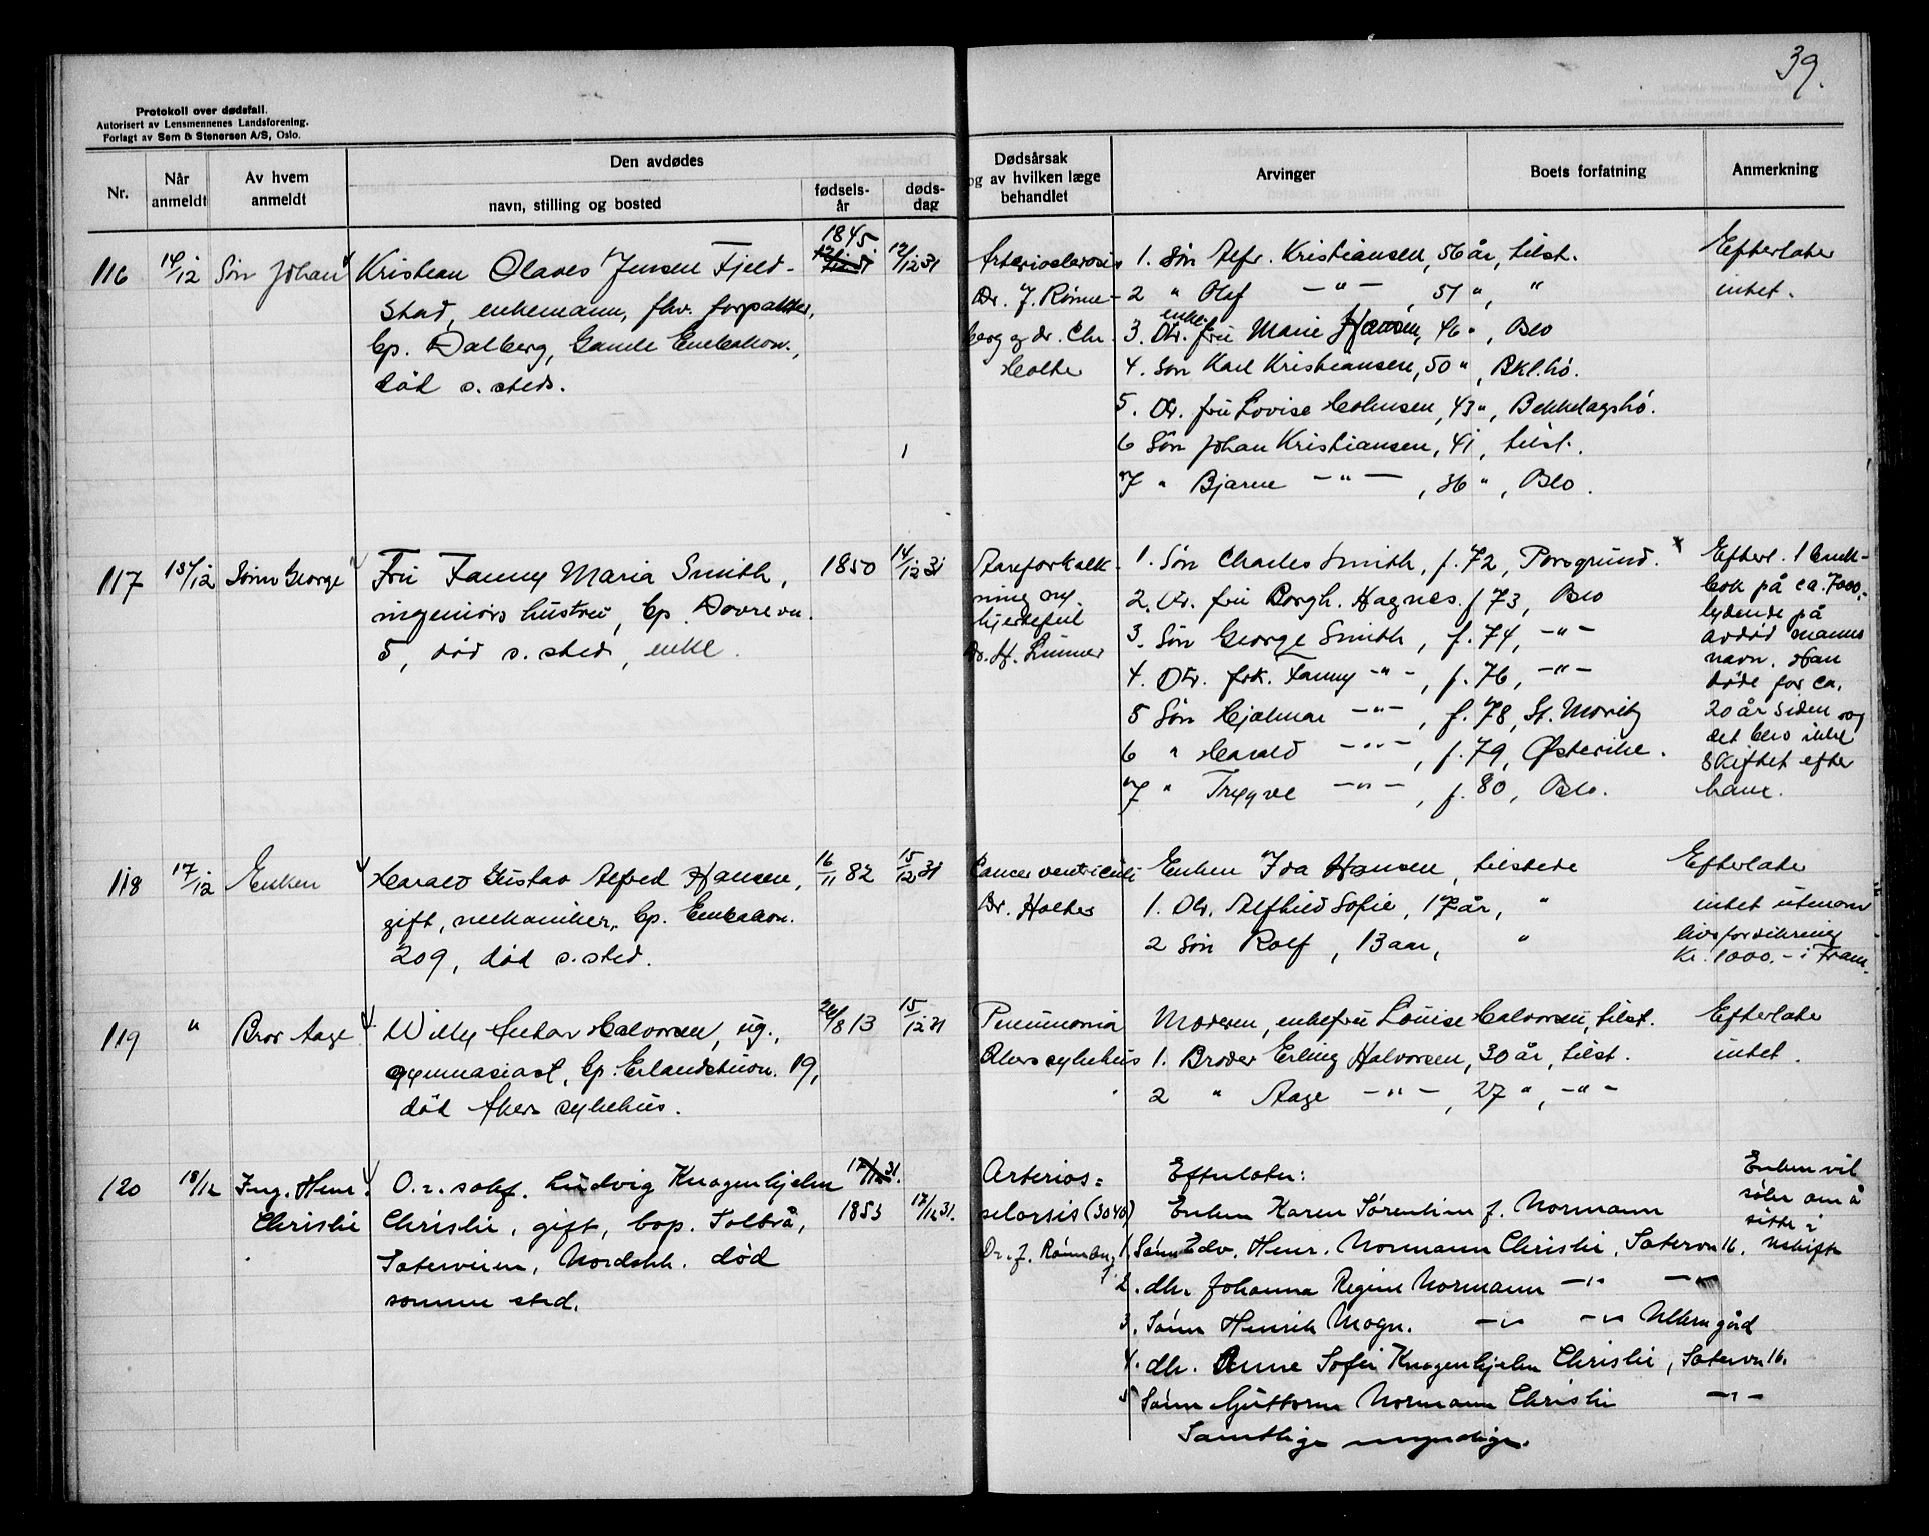 39.
Protokoll over dødsfall.
Autorisert av Lensmennenes Landsforening.
Forlagt av Sem & Stenersen A/S, Oslo.
Nr.
Når anmeldt
Av hvem anmeldt
Den avdødes
navn, stilling og bosted
fødsels-år
døds-dag
Dødsårsak og av hvilken læge behandlet
Arvinger
Boets forfatning
Anmerkning
116 14/12 Søn Johan
Kristian Olaves Jensen Fjeld-
stad, enkemann, fhv. forpakter,
bp. Dalberg, Gamle Enebakkv.,
død s. sted.
1845
12/12 31
Arteriosclerosis
Dr. J. Rønne-
berg og dr. Chr.
Holte
1. Søn Alfr. Kristiansen, 56 år, tilst.
2 " Olaf — " — , 51 ", "
3. Dtr. enkefru Marie Hansen, 46 ", Oslo
4. Søn Karl Kristiansen, 50 ", Bkl.hø.
5. Dtr. fru Lovise Holmsen, 43 ", Bekkelagshø.
6 Søn Johan Kristiansen, 41, tilst.
7 " Bjarne — " — , 36 ", Oslo.
Efterlater
intet.
117 15/12 Sønn George
Fru Fanny Maria Smith,
ingeniørs hustru, bp. Dovrevn.
5, død s. sted, enke.
1850
14/12 31
Aareforkalk-
ning og
hjertefeil
Dr. H. Linner
1. Søn Charles Smith, f. 72, Porsgrund.
2. Dtr. fru Borgh. Hagnes. f 73, Oslo
3. Søn George Smith, f. 74, — " —
4. Dtr. frk. Fanny — " — , f. 76, — " —
5 Søn Hjalmar — " — , f. 78, St. Moritz
6 " Harald — " — , f. 79, Østerike.
7 " Trygve — " — , f. 80, Oslo.
x Efterl. 1 bank-
bok på ca. 7000,-
lydende på
avdød manns
navn. Han
døde for ca.
20 år siden og
det blev ikke
skiftet efter
ham.
118 17/12 Enken
Harald Gustav Alfred Hansen,
gift, mekaniker, bp. Enebakkv.
209, død s. sted.
16/11 82
15/12 31
Cancer ventriculi
Dr. Holter
Enken Ida Hansen, tilstede
1. Dtr. Alfhild Sofie, 17 år, "
2 Søn Rolf, 13 aar, "
Efterlater
intet utenom
livsforsikring
Kr. 1000.- i Fram.
119 " Bror Aage
Willy Anton Halvorsen, ug.,
gymnasiast, bp. Erlandstuvn. 19,
død Aker sykehus.
26/8 13
15/12 31
Pneumonia
Akers sykehus
Moderen, enkefru Louise Halvorsen, tilst.
1. Broder Erling Halvorsen, 30 år, tilst.
2 " Aage — " — , 27 ", — " —
Efterlater
intet.
120 18/12 Ing. Henr.
Christie
O.r. sakf. Ludvig Knagenhjelm
Christie, gift, bop. Solbrå,
Seterveien, Nordstr. død
samme sted.
17/12 31.
1853
17/12 31.
Arterios=
sclorsis (3040)
Dr. J. Rønneb.
Efterlater:
Enken Karen Sørenline f. Normann
1. Sønn Edv. Henr. Normann Christie, Setervn 16.
2. dtr. Johanna Regine Normann — " — — " —
3. Sønn Henrik Mogn. — " — — " — Ullern gård
4. dtr. Anne Sofie Knagenhjelm Christie, Setervn 16.
5 Sønn Guttorm Normann Christie — " —
Samtlige myndige.
Enken vil
søke om å
sitte i
uskifte